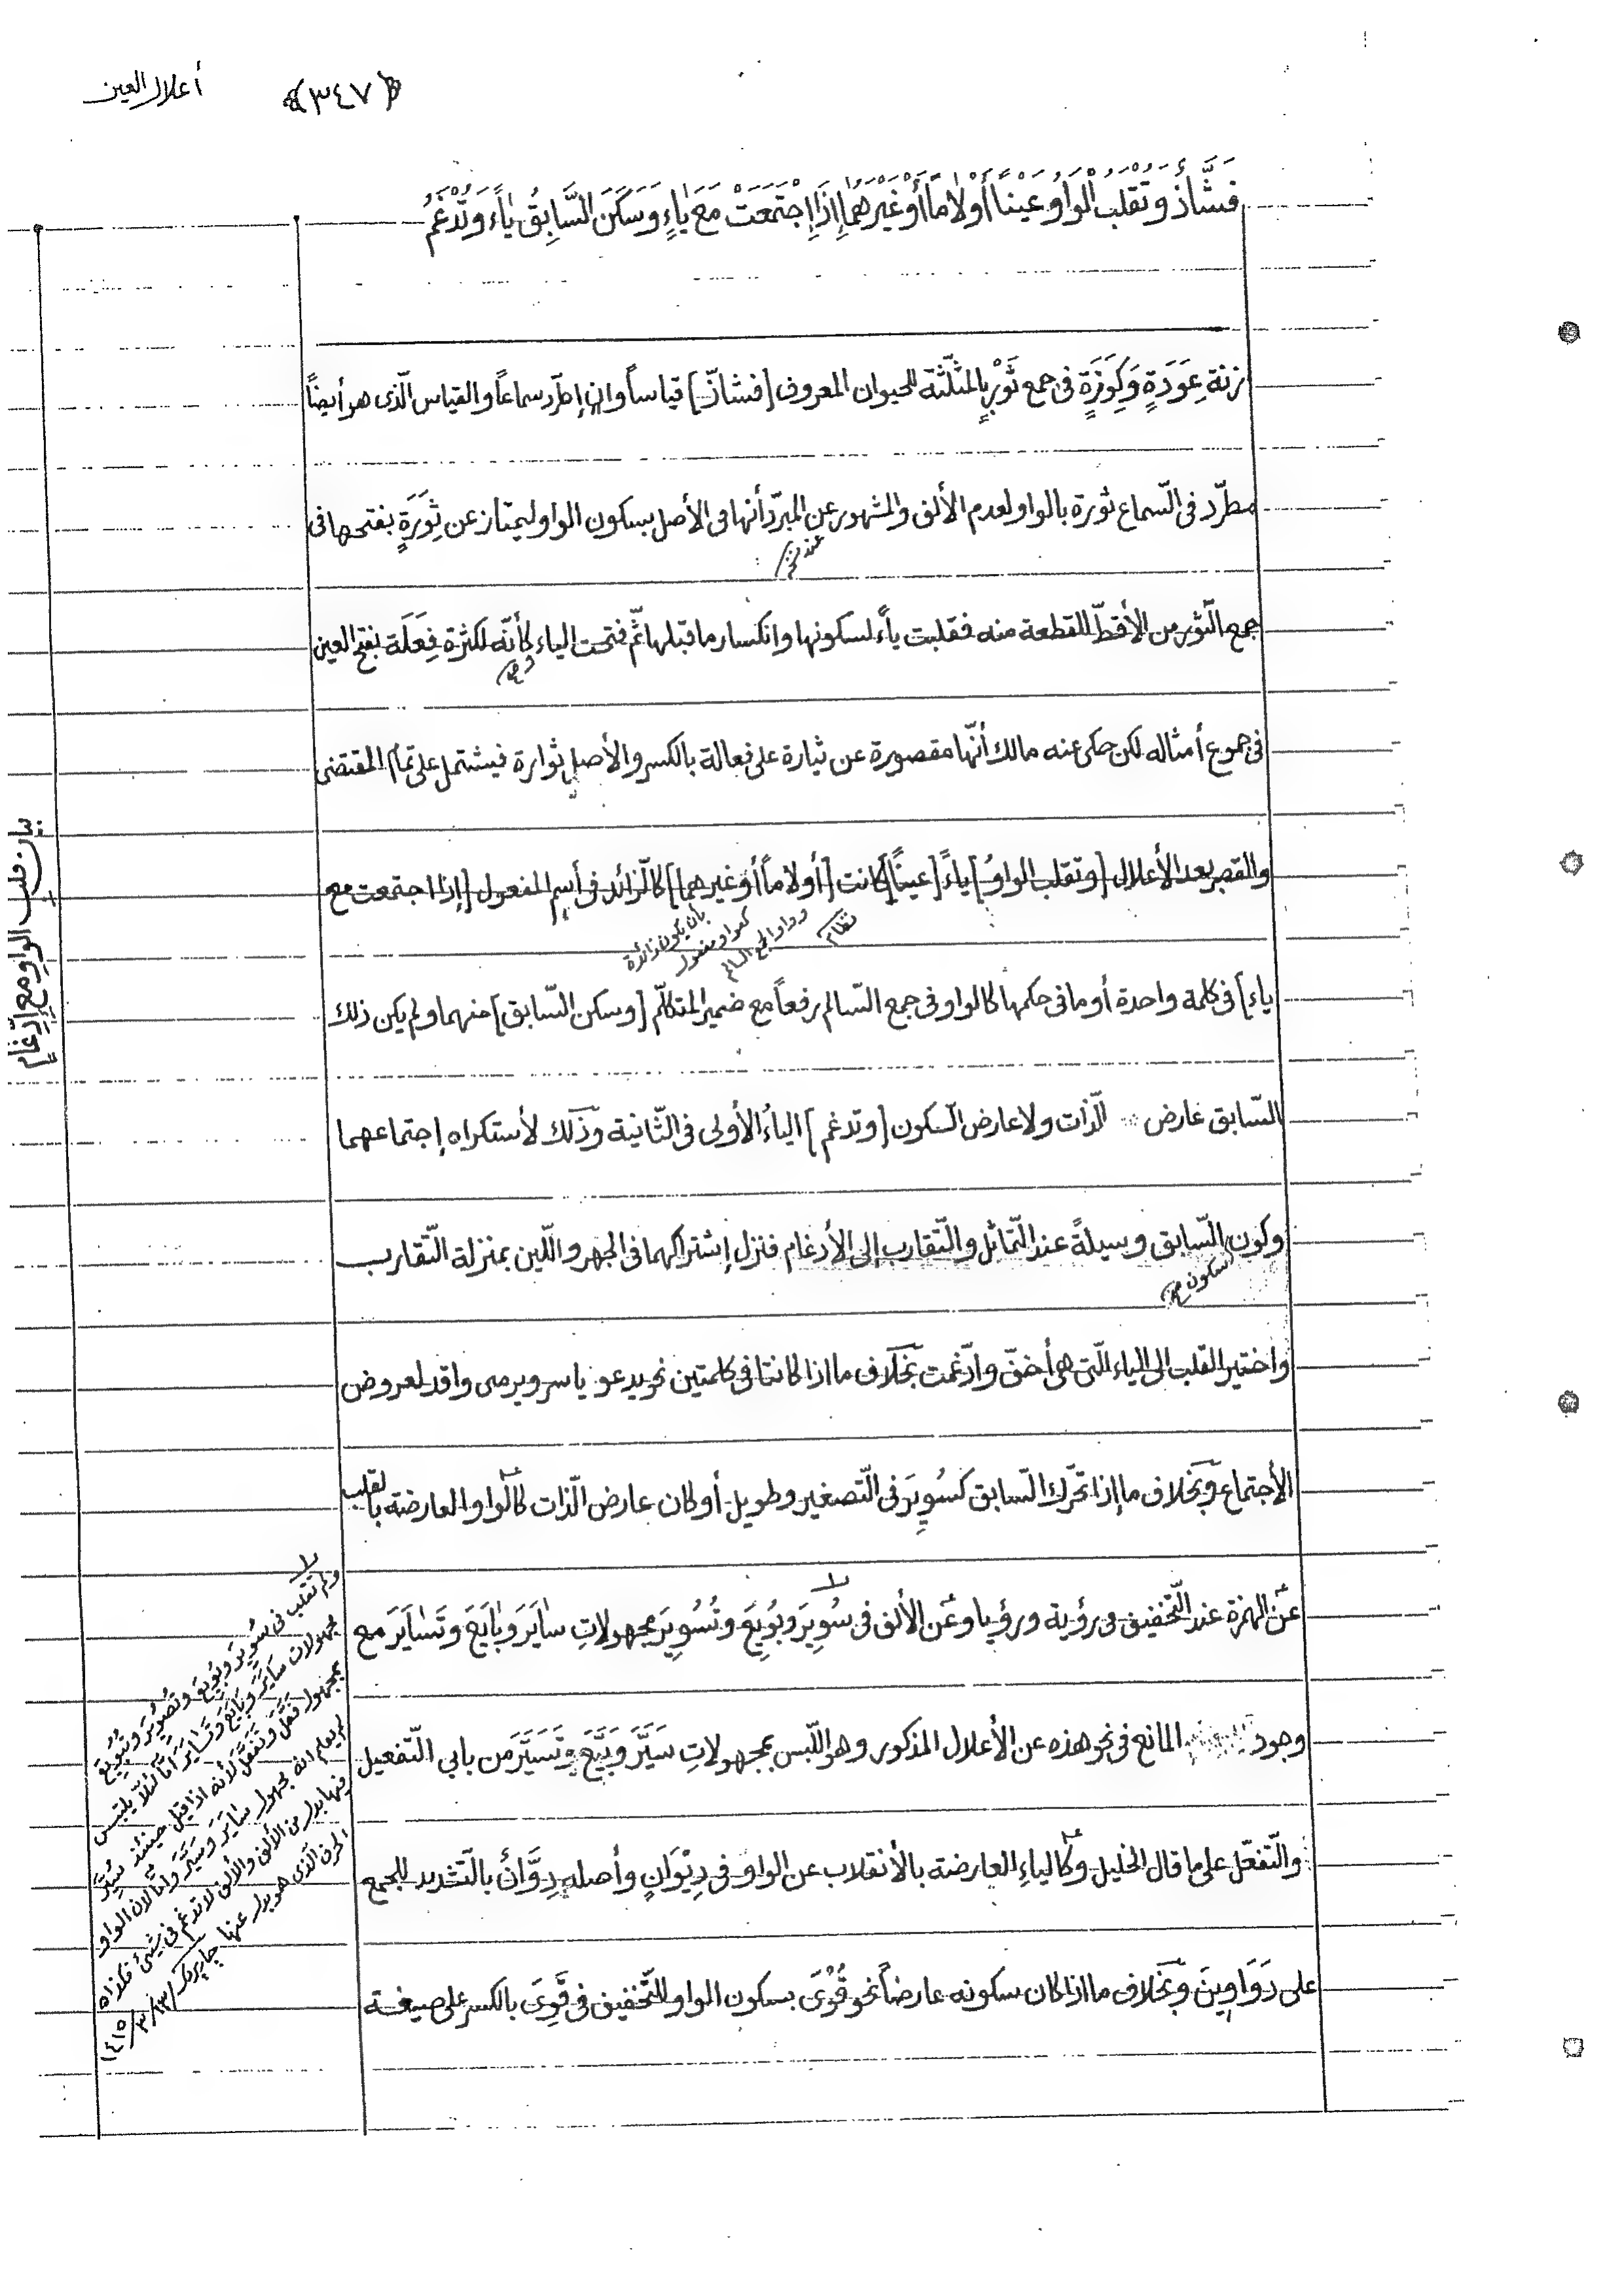 أعلال العين
﴿٣٤٧﴾
فَشَّاذٌ وَتُقْلَبُ الْوَاوُ عَيْنًا أَوْ لَامًا أَوْ غَيْرَهُمَا إِذَا إِجْتَمَعَتْ مَعَ يَاءٍ وَسَكَنَ السَّابِقُ يَاءً وَتُدْغَمُ
زنة عِوَدَةٍ وَكِوَزَةٍ فى جمع ثَوْرٍ بالمثلّثة للحيوان المعروف [فشاذّ] قياساً وإن إطّرد سماعاً والقياس الّذى هو أيضاً
مطّرد فى السّماع ثورة بالواو لعدم الألف والمشهور عن المبرّد أنها فى الأصل بسكون الواو ليمتاز عن ثِوَرَةٍ بفتحها فى
جمع الثّور من الأقطّ للقطعة منه فقلبت ياءً لسكونها وانكسار ماقبلها ثمّ فتحت الياء كأنّه لكثرة فِعَلَة بفتح العين
فى جموع أمثاله لكن حكى عنه مالك أنّها مقصورة عن ثيارة على فعالة بالكسر والأصل ثوارة فيشتمل على تمام المقتضى
والقصر بعد الأعلال [وتقلب الواوُ] ياءً [عيناً] كانت [أو لاماً أو غيرهما] كالزّائد فى أسم المفعول [إذا اجتمعت مع
نظام
وواو الجمع السالم
كواو مفعول
بأن يكون زائدة
ياء] فى كلمة واحدة أو مافى حكمها كالواو فى جمع السّالم رفعاً مع ضمير المتكلّم [وسكن السّابق] منهما ولم يكن ذلك
السّابق عارض الذّات ولا عارض السّكون [وتدغم] الياءُ الأولى فى الثّانية وذلك لأستكراه إجتماعهما
وكون السّابق وسيلةً عند التّماثل والتّقارب إلى الأدغام فنزل إشتراكهما فى الجهر واللّين بمنزلة التّقارب
واختير القلب الى الياء الّتى هى أخفّ وادّغمت بخلاف ما اذا كانتا فى كلمتين نحو يدعو ياسر ويرمى واقد لعروض
الأجتماع وبخلاف ما إذا تحرّك السّابق كسُوِيِر فى التّصغير وطويل أو كان عارض الذّات كالواو العارضة بالقلب
عن الهمزة عند التّخفيف فى رؤية ورؤيا وعن الألف فى سُوِيرَ وبُويِعَ وتُسُوِيرَ مجهولاتِ سٰايَرَ وبٰايَعَ وتَسٰايَرَ مع
وجود المانع فى نحو هذه عن الأعلال المذكور وهو اللّبس بمجهولاتِ سَيَّرَ وبَيَّعَ وتَسَيَّرَ من بابي التّفعيل
والتّفعّل على ما قال الخليل وكالياءِ العارضة بالأنقلاب عن الواو فى دِيْوَانٍ وأصله دِوَّانٌ بالتّشديد للجمع
على دَوَاوِينَ وبخلاف ما اذا كان سكونه عارضاً نحو قَوْىَ بسكون الواو للتّخفيف فى قَوِىَ بالكسر على صيغة
بيان قلب الواو مع إدّغامٍ
ولم تقلب فى سُوِيرَ وبُويِعَ وتُسُوِيرَ وتُبُويِعَ
مجهولات سٰايَرَ وبٰايَعَ وتَسٰايَرَ امّا لئلّا يلتبس
بمجهول فَعَّلَ وتَفَعَّلَ لأنه اذا قيل حينئذ سُيِّرَ
لم يعلم انّه مجهول سٰايَرَ وسَيَّرَ وامّا لأن الواو
فيها بدل من الألف والألف لا تدغم فى شئ فكذا
الحرف الّذى هو بدل عنها چاپردى ١٤١٥/٣/١٣